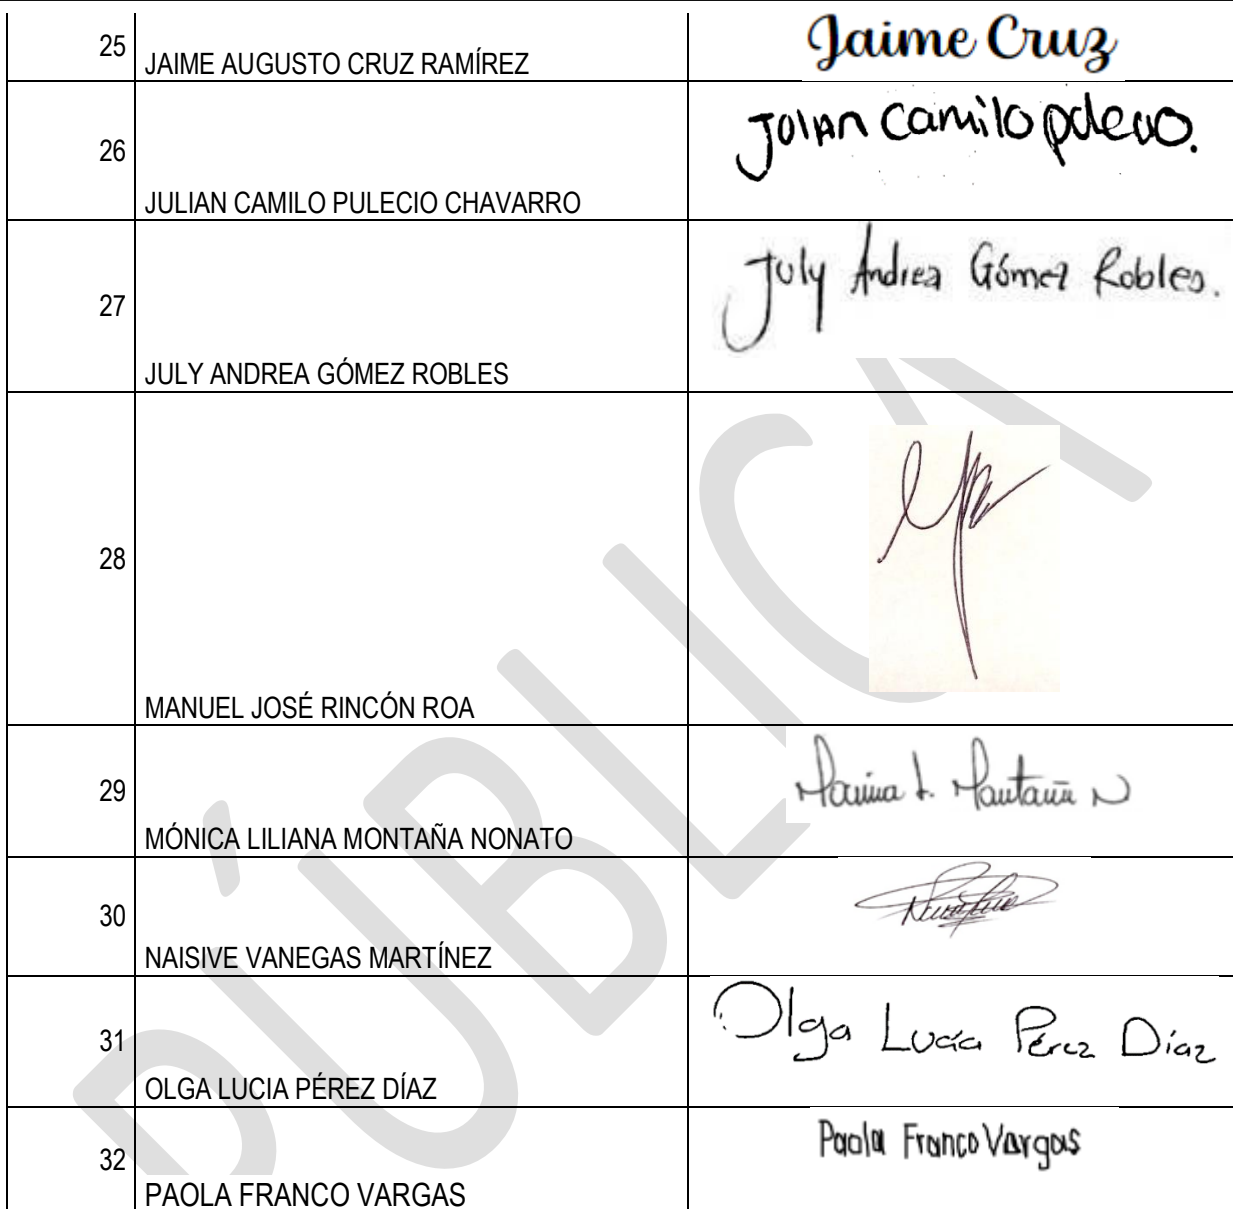 25 JAIME AUGUSTO CRUZ RAMÍREZ Jaime Cruz
26 JULIAN CAMILO PULECIO CHAVARRO Julian Camilo pulecio.
27 JULY ANDREA GÓMEZ ROBLES July Andrea Gómez Robles.
28 MANUEL JOSÉ RINCÓN ROA
29 MÓNICA LILIANA MONTAÑA NONATO L. Montaña N
30 NAISIVE VANEGAS MARTÍNEZ
31 OLGA LUCIA PÉREZ DÍAZ Olga Lucía Pérez Díaz
32 PAOLA FRANCO VARGAS Paola Franco Vargas
PÚBLICA